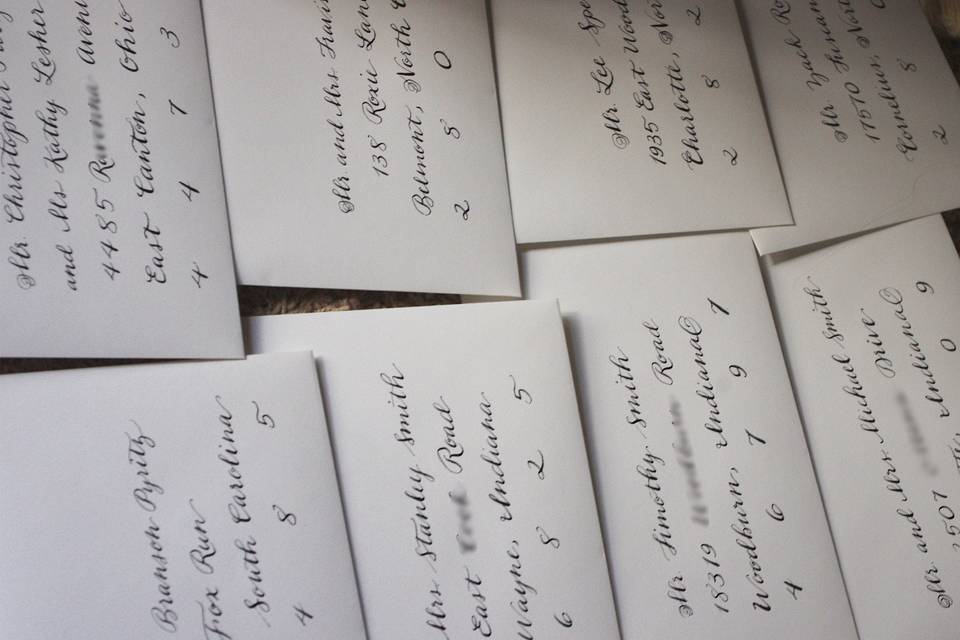 Mr. Christopher
and Ms Kathy Lesher
4485 Avenu
East Canton, Ohio
4 4 7 3
Mr. and Mrs. Travi
138 Roxie Lan
Belmont, North C
2 8 0
Mr. Lee Spe
1935 East Wood
Charlotte, Nor
2 8 2
Mr. Zack Ro
17570
Cornelius, Nort
2 8 0
Branson Pyrity
Fox Run
South Carolina
4 8 5
Mrs Stanley Smith
East Road
Wayne, Indiana
6 8 2 5
Mr. Timothy Smith
18319 Road
Woodburn, Indiana
4 6 7 9 7
Mr. and Mrs Michael Smith
2507 Drive
Indiana
0 9